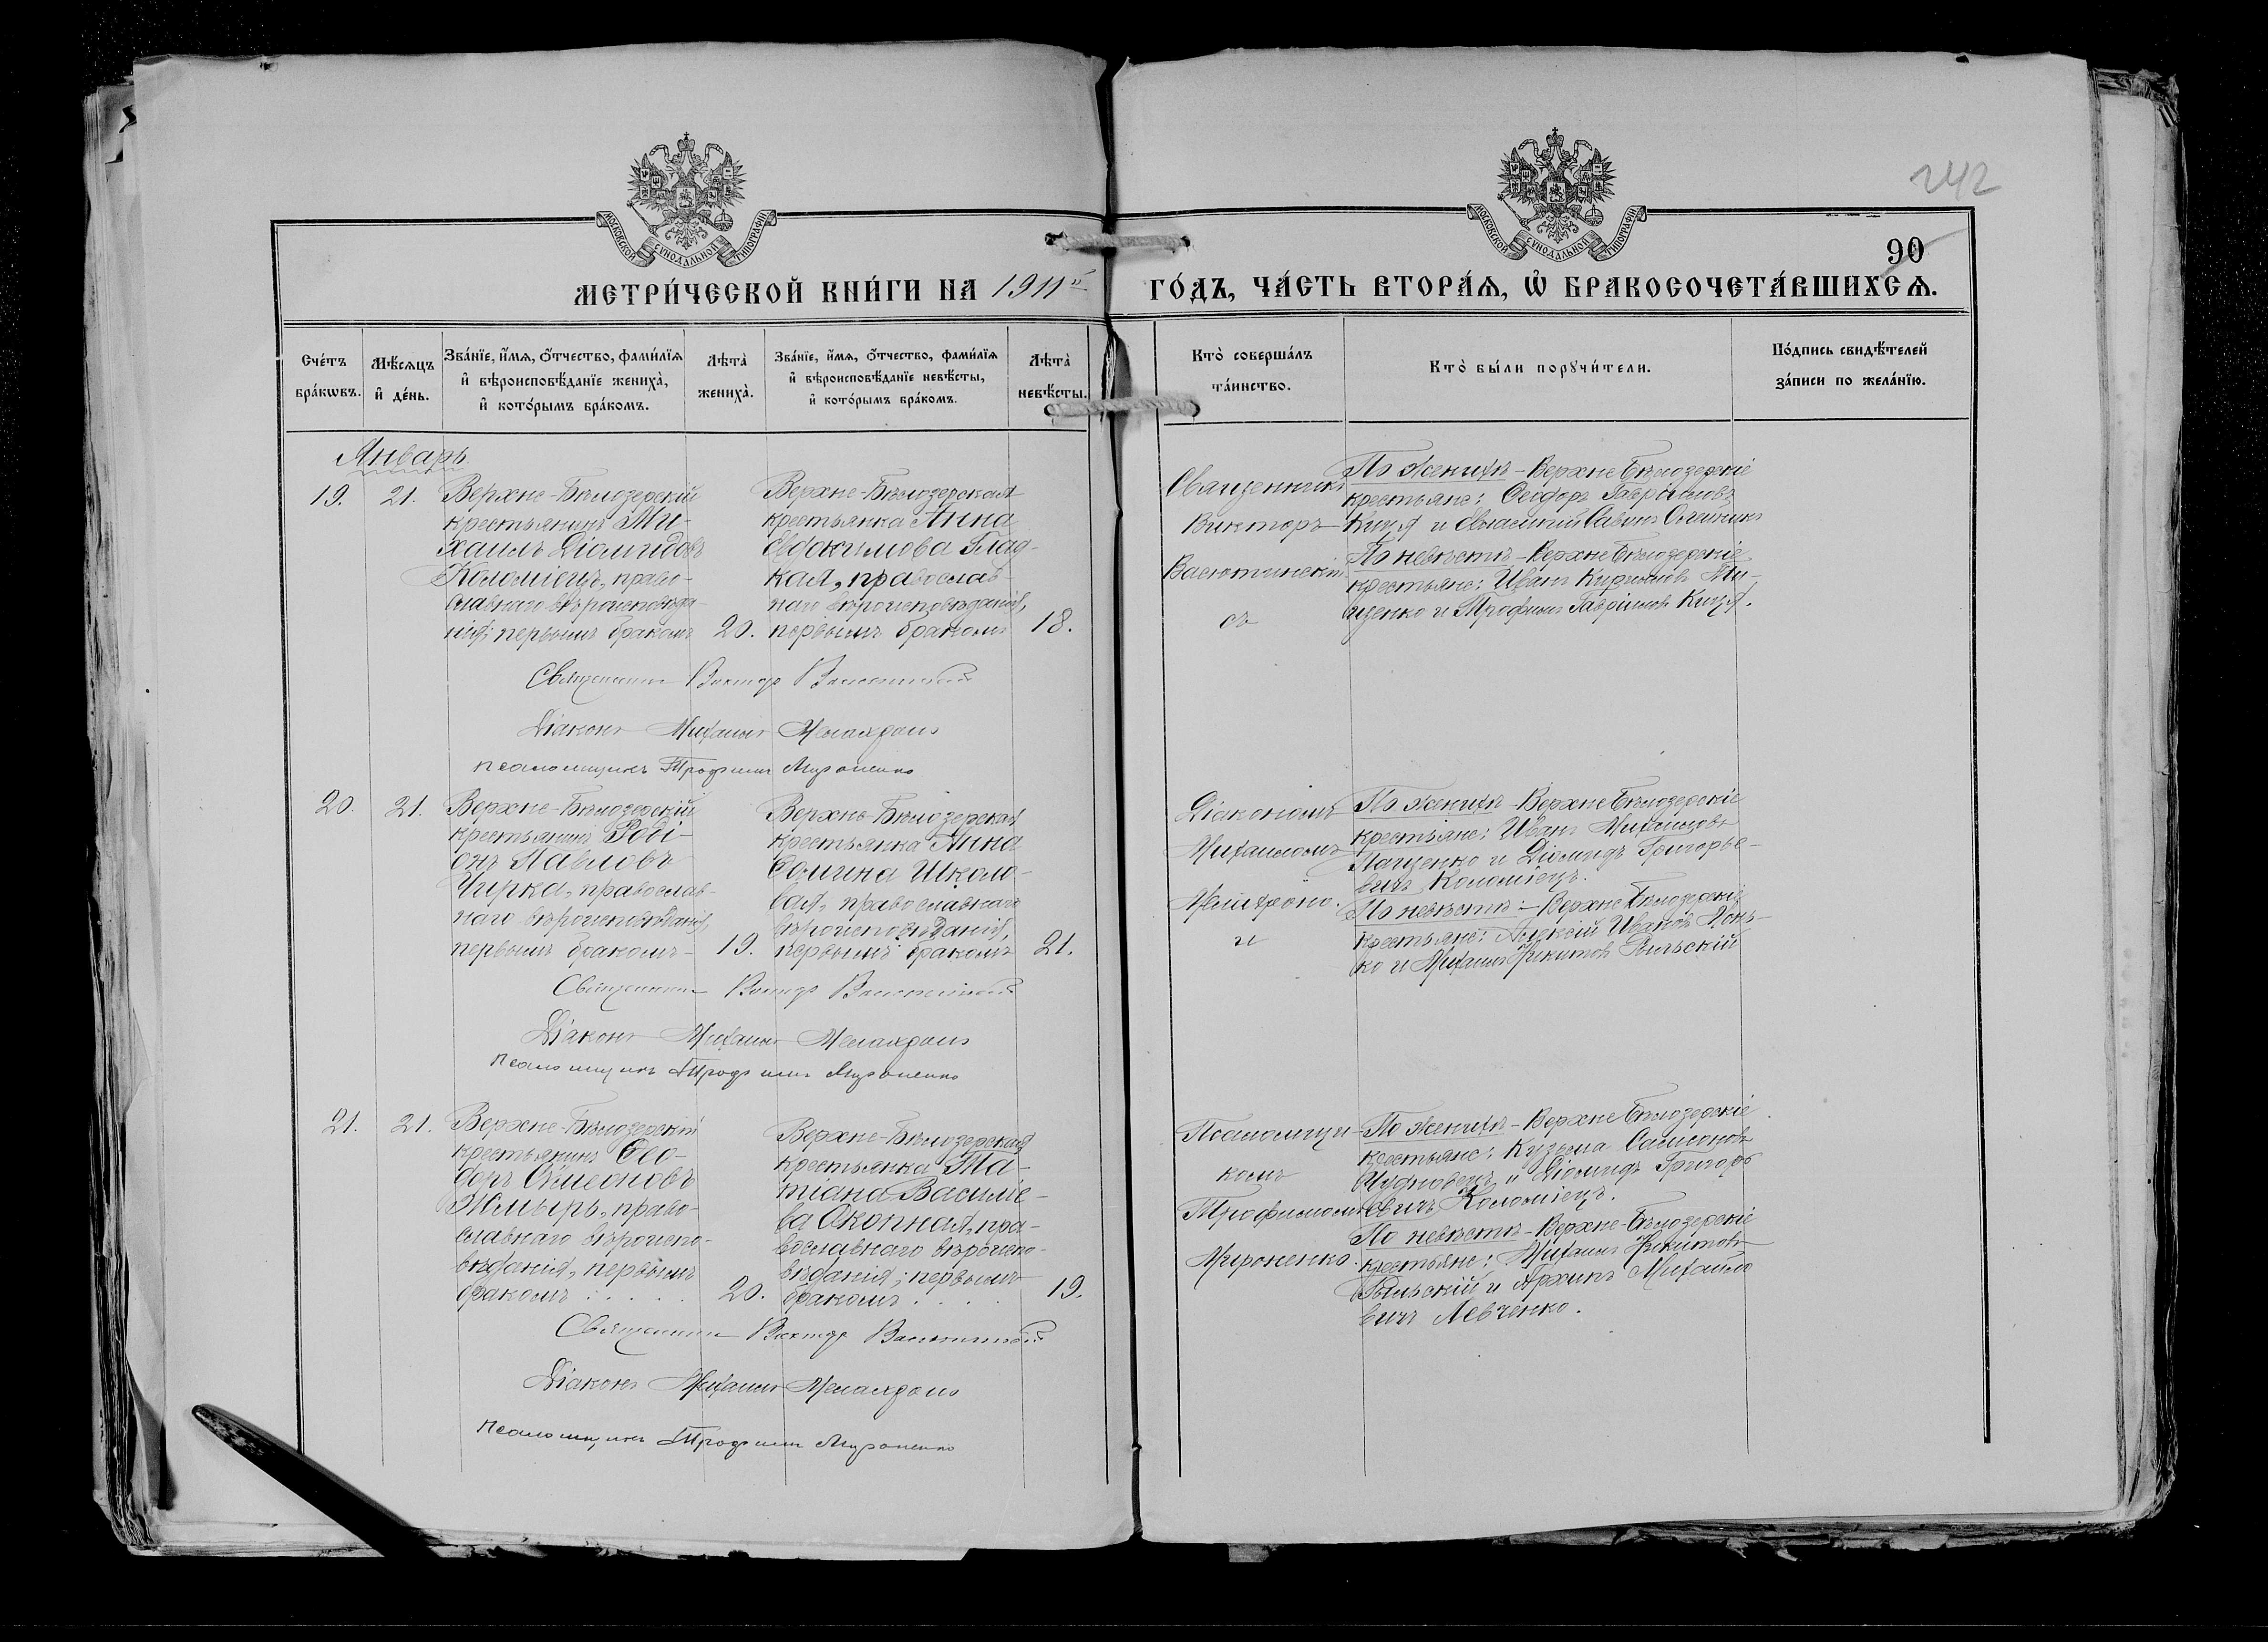 242
90
МОСКОВСКОЙ СѴНОДАЛЬНОЙ ТИПОГРАФІИ
МОСКОВСКОЙ СѴНОДАЛЬНОЙ ТИПОГРАФІИ
МЕТРИ́ЧЕСКОЙ КНИ́ГИ НА 1911й ГО́ДЪ, ЧА́СТЬ ВТОРА́Ѧ, Ѽ БРАКОСОЧЕТА́ВШИХСѦ.
Сче́тъ бра́кѡвъ.
Мѣ́сѧцъ и҆ де́нь.
Зва́нїе, и҆́мѧ, ѻ҆́тчество, фами́лїѧ
и҆ вѣроисповѣ́данїе жениха̀,
и҆ кото́рымъ бра́комъ.
Лѣта̀ жениха̀.
Зва́нїе, и҆́мѧ, ѻ҆́тчество, фами́лїѧ
и҆ вѣроисповѣ́данїе невѣ́сты,
и҆ кото́рымъ бра́комъ.
Лѣта̀ невѣ́сты.
Кто̀ соверша́лъ та́инство.
Кто̀ бы́ли порꙋчи́тели.
По́дпись свидѣ́телей за́писи по жела́нїю.
Январь
19.
21.
Верхне-Бѣлозерскій
крестьянинъ Ми-
хаилъ Діомидовъ
Коломіецъ, право-
славнаго вѣроисповѣда-
нія, первымъ бракомъ
20.
Верхне-Бѣлозерская
крестьянка Анна
Евдокимова Глад-
кая, православ-
наго вѣроисповѣданія,
первымъ бракомъ
18.
Священникъ
Викторъ
Васютинскій
съ
По женихѣ - Верхне Бѣлозерскіе
крестьяне: Ѳеодоръ Гавріиловъ
Куця и Савинъ Олейникъ
По невѣстѣ - Верхне Бѣлозерскіе
крестьяне: Иванъ Кирилловъ Ти-
щенко и Трофимъ Гавріиловъ Куця.
Священникъ Викторъ Васютинскій
Діаконъ Михаилъ
Псаломщикъ Трофимъ Мироненко
20.
21.
Верхне-Бѣлозерскій
крестьянинъ Роді-
онъ Павловъ
Чирка, православ-
наго вѣроисповѣданія,
первымъ бракомъ-
19.
Верхне-Бѣлозерская
крестьянка Анна
Ѳомина Школо-
вая, православнаго
вѣроисповѣданія,
первымъ бракомъ
21.
Діакономъ
Михаиломъ
и
По женихѣ - Верхне Бѣлозерскіе
крестьяне: Иванъ Михаиловъ
Пащенко и Діомидъ Григорье-
вичъ Коломіецъ.
По невѣстѣ: - Верхне Бѣлозерскіе
крестьяне: Алексій Ивановъ
ко и Михаилъ Никитовъ Рыльскій
Священникъ Викторъ Васютинскій
Діаконъ Михаилъ
Псаломщикъ Трофимъ Мироненко
21.
21.
Верхне-Бѣлозерскій
крестьянинъ Ѳео-
доръ Сѵмеоновъ
Жмырь, право-
славнаго вѣроиспо-
вѣданія, первымъ
бракомъ . . . . .
20.
Верхне-Бѣлозерская
крестьянка Та-
тіана Василіе-
ва Окопная, пра-
вославнаго вѣроиспо-
вѣданія; первымъ
бракомъ . . . .
19.
Псаломщи-
комъ
Трофимомъ
Мироненко.
По женихѣ - Верхне Бѣлозерскіе
крестьяне: Кузьма Самсоновъ
и Діомидъ Григорь
евичъ Коломіецъ.
По невѣстѣ - Верхне-Бѣлозерскіе
крестьяне: Михаилъ Никитовъ
Рыльскій и Архипъ Михаило
вичъ Левченко.
Священникъ Викторъ Васютинскій
Діаконъ Михаилъ
Псаломщикъ Трофимъ Мироненко